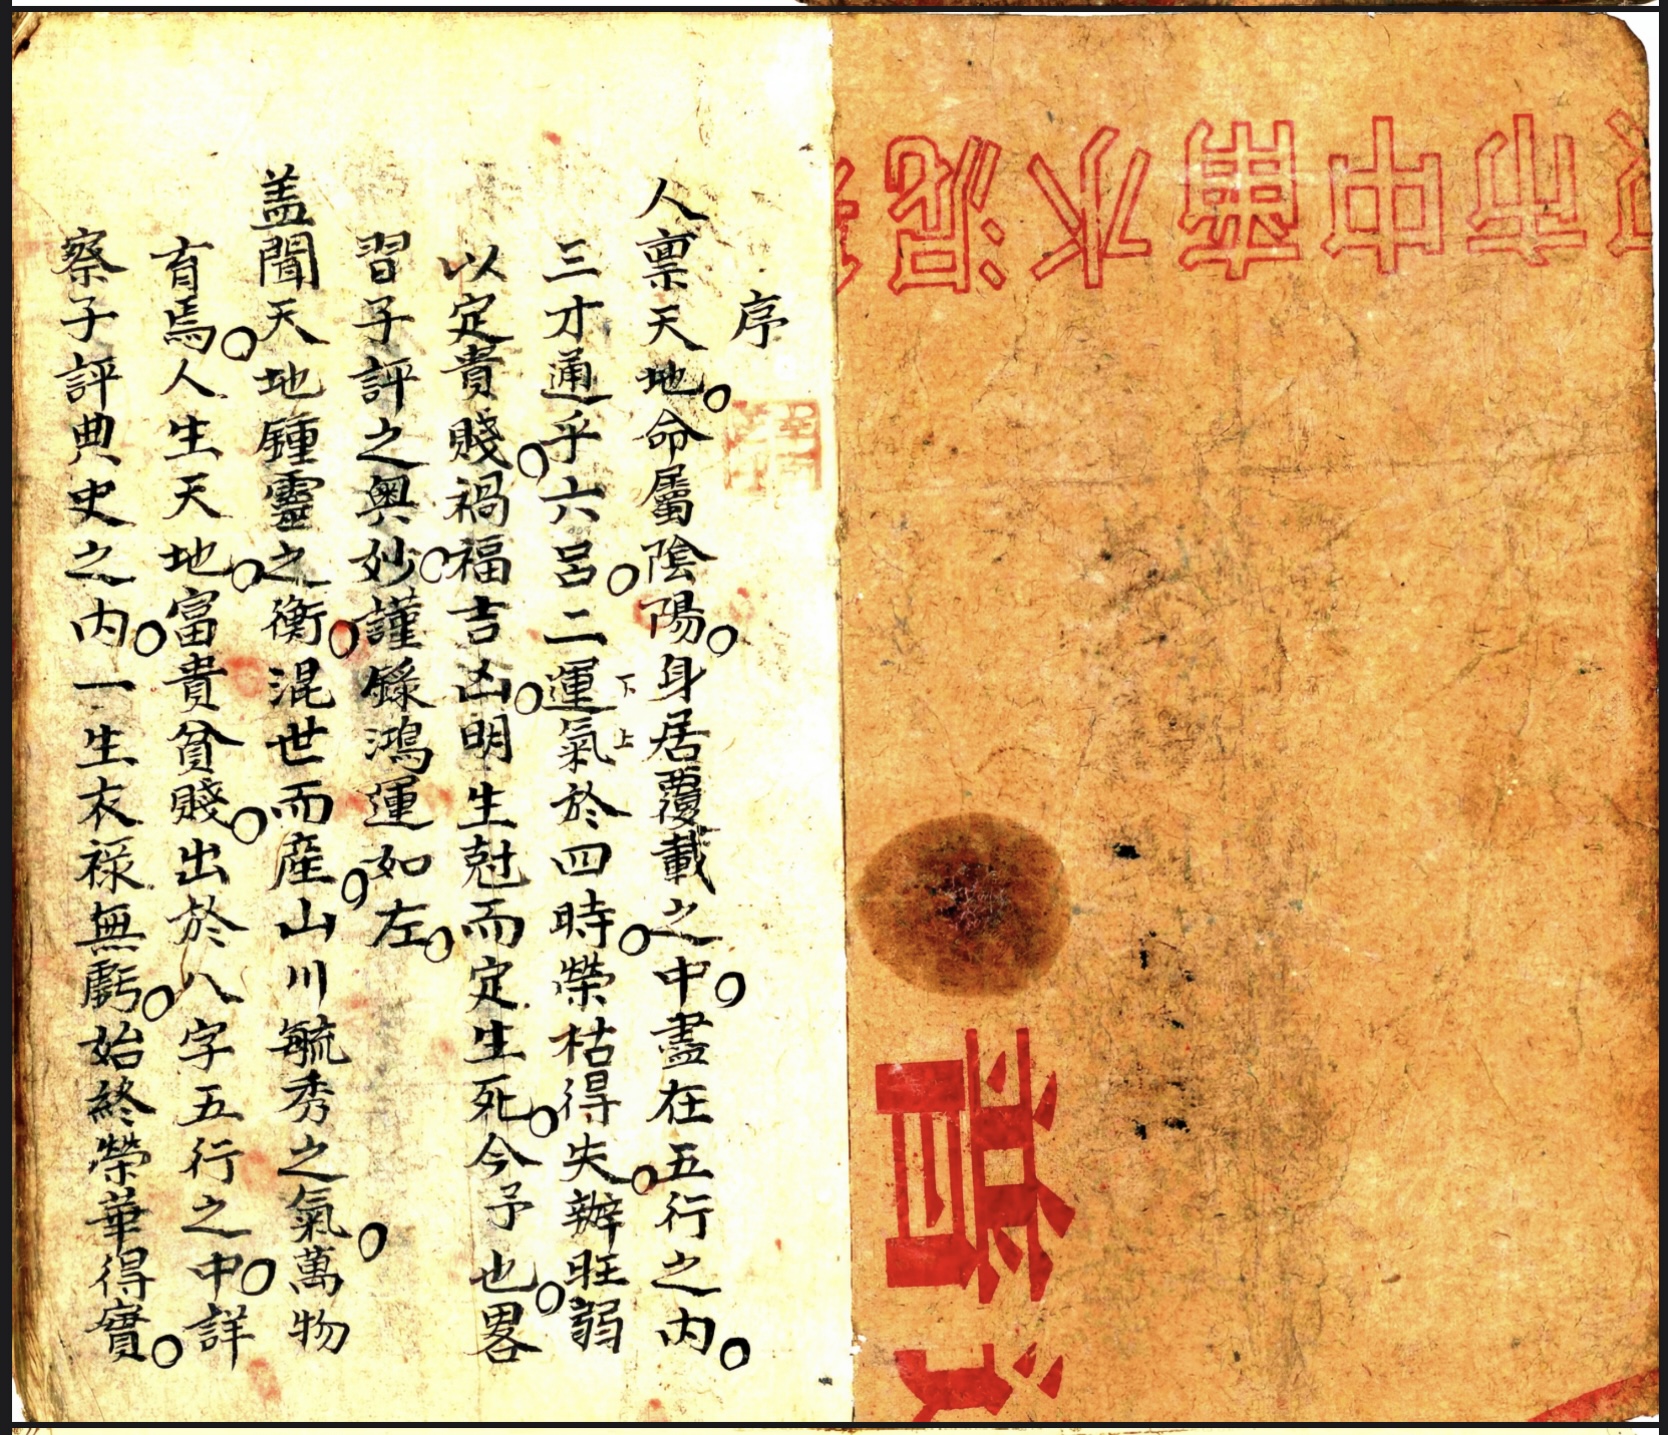 序
人禀天地。命屬陰陽。身居覆載之中。盡在五行之內。
三才通乎六呂。二運氣於四時。榮枯得失。辦旺弱
下
上
以定貴賤。禍福吉凶。明生尅而定生死。今予也。畧
習子評之奥妙。謹錄鴻運如左。
盖聞天地鍾靈之衡。混世而産。山川毓秀之氣。萬物
育焉。人生天地。富貴貧賤。出於八字五行之中。詳
察子評典史之內。一生衣禄無虧。始終榮華得實。